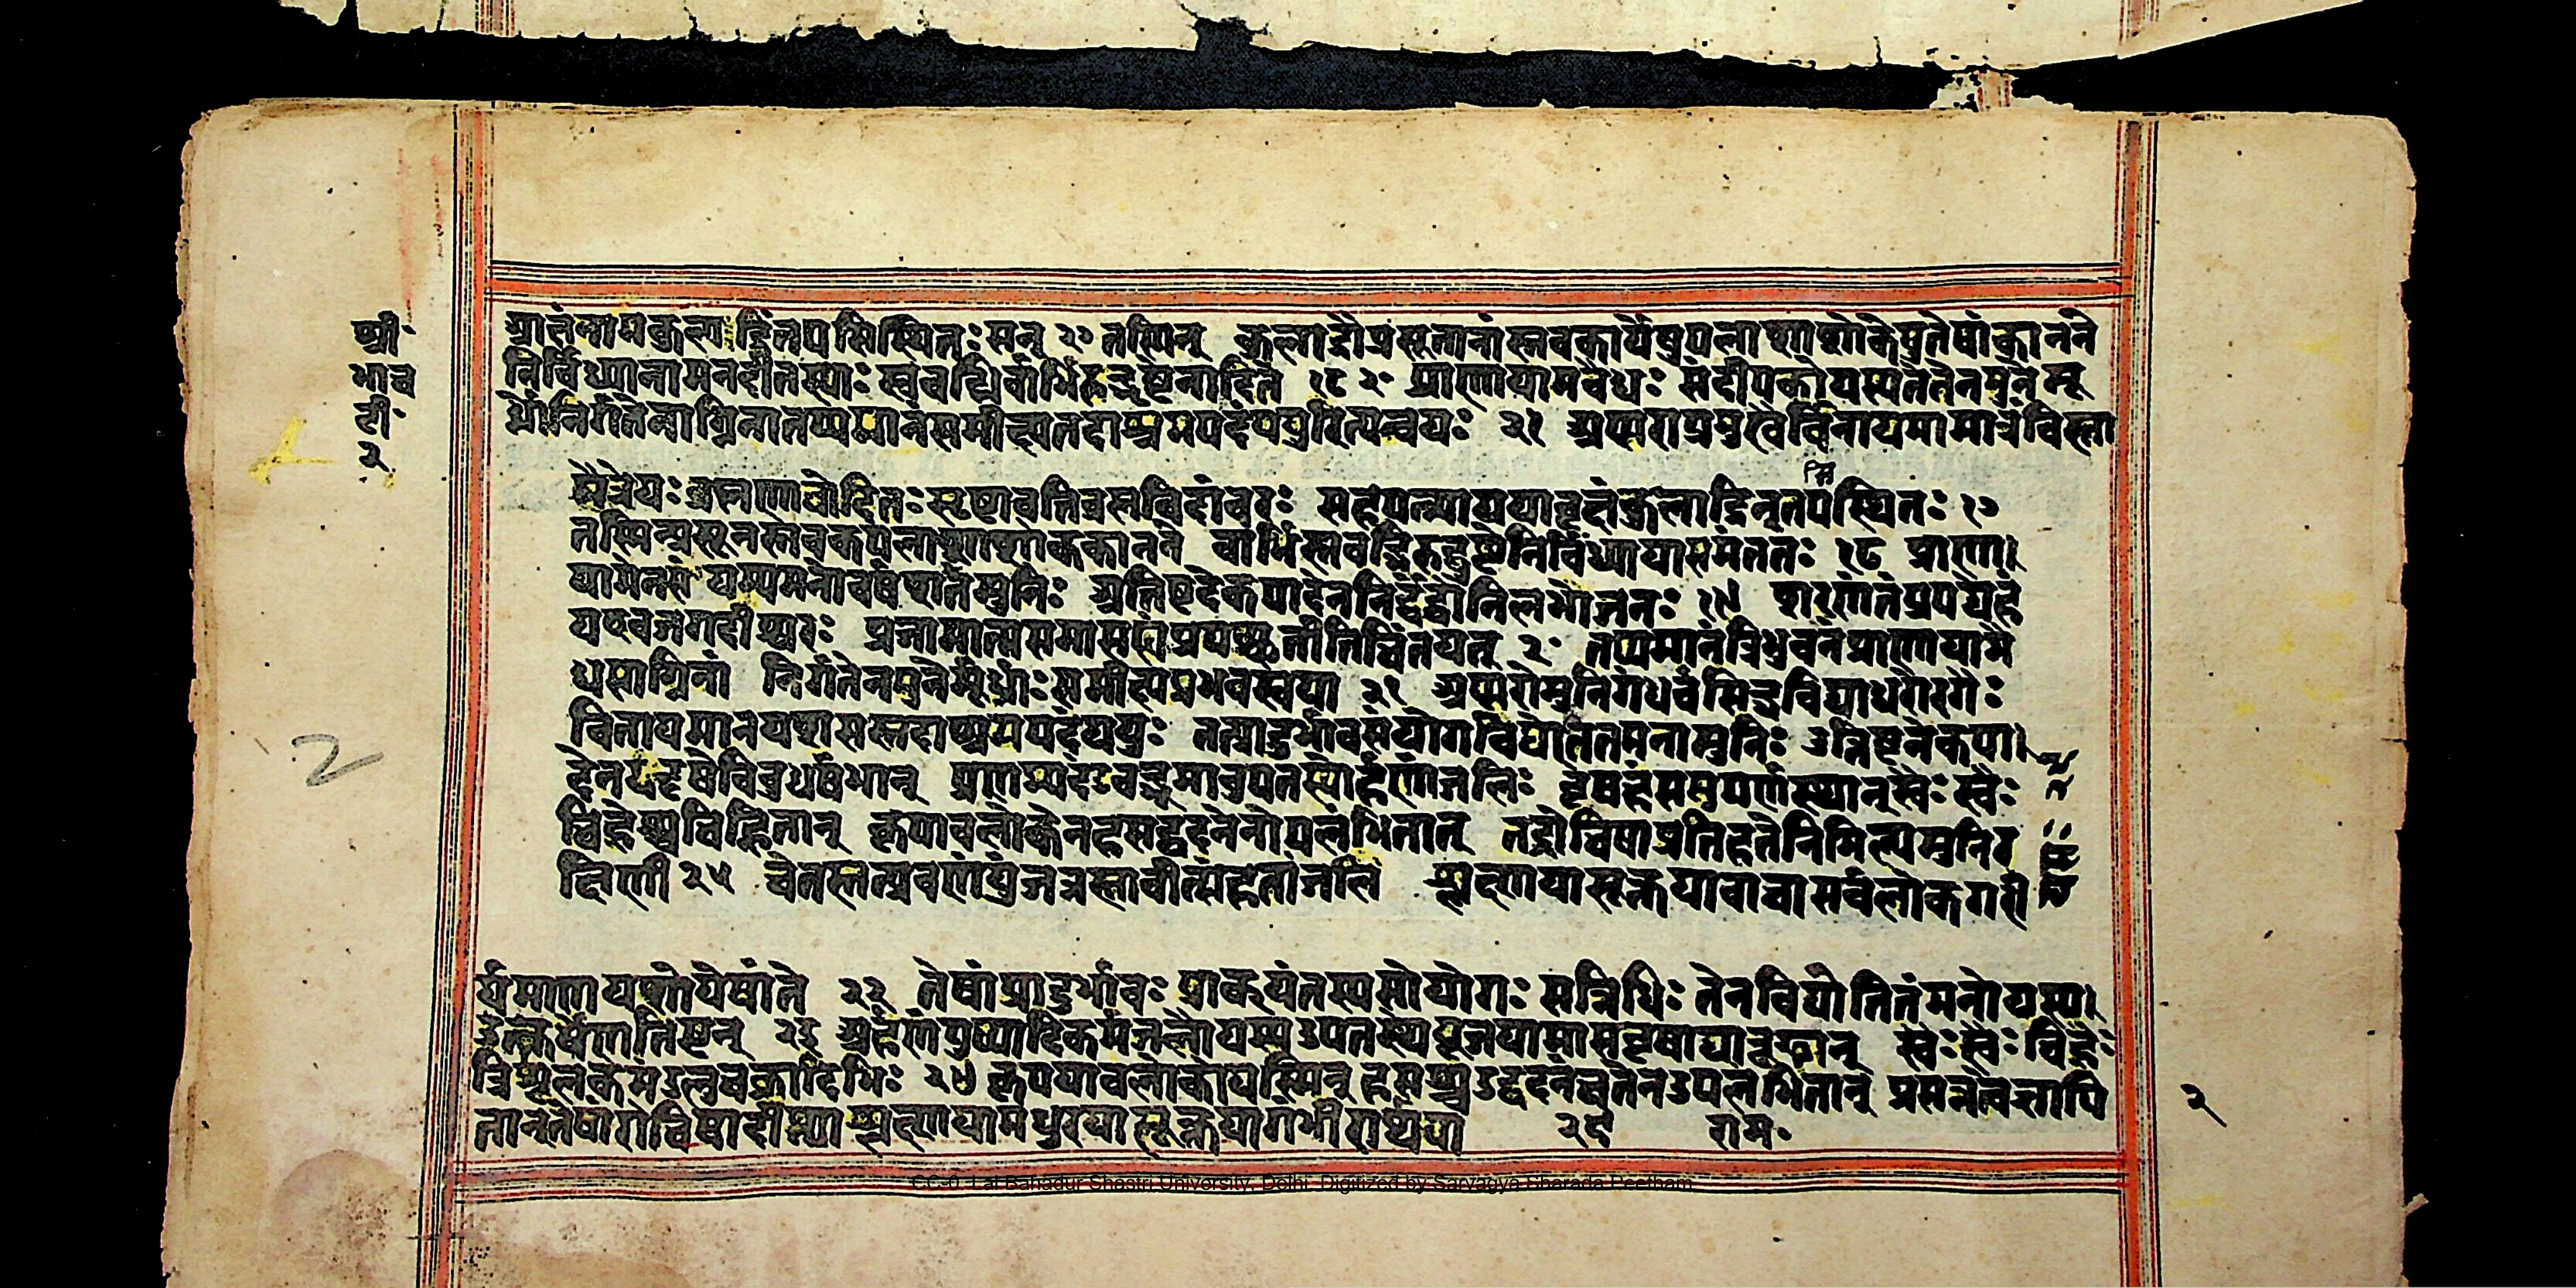 श्री
भा॰च
टी॰
२
प्रातंनामकुलाद्रिंतपसिस्थितः सन् १७ तस्मिन् कुलाद्रौप्रसूनानांस्तवकायेषुपलाशाशोकेषुतेषांकानने
निर्विंध्यानामनदीतस्याः स्रवद्भिर्वार्भिरुद्घुष्टेनादिते १८ २॰ प्राणायामएवैधः संदीपकोयस्यतेतेनमुनेर्मू
र्ध्नोनिर्गतेनाग्निनातप्यमानंसमीक्ष्यतदाश्रमपदंययुरित्यन्वयः २१ अप्सराप्रमुखैर्वितायमामानंविस्ता
मैत्रेयः ब्रह्मणाचोदितः सृष्टावत्रिर्ब्रह्मविदांवरः सहपत्न्याययावृक्षंकुलाद्रिंनुतपसिस्थितः १७
तस्मिन्प्रसूनस्तवकपलाशाशोककानने वार्भिःस्रवद्भिरुद्घुष्टेनिर्विंध्यायासमंततः १८ प्राणा
यामेनसंयम्यमनोवर्षशतंमुनिः अतिष्ठदेकपादेननिर्द्वंद्वोनिलभोजनः १९ शरणंतंप्रपद्येहं
यएवजगदीश्वरः प्रजामात्मसमांमह्यंप्रयच्छत्वितिचिंतयन् २॰ तप्यमानंत्रिभुवनंप्राणायामै
धसाग्निना निर्गतेनमुनेर्मूर्ध्नः समीक्ष्यप्रभवस्त्रयः २१ अप्सरोमुनिगंधर्वसिद्धविद्याधरोरगैः
वितायमानयशसस्तदाश्रमपदंययुः तत्प्रादुर्भावसंयोगविद्योतितमनामुनिः उत्तिष्ठन्नेकपा
देनददर्शविबुधर्षभान् प्रणम्यदंडवद्भूमावुपतस्थेर्हणांजलिः वृषहंससुपर्णस्थान्स्वैः स्वैः
चिह्नैश्चचिह्नितान् कृपावलोकेनहसद्वदनेनोपलंभितान् तद्रोचिषाप्रतिहतेनिमील्यमुनिर
क्षिणी २५ चेतस्तत्प्रवणंयुंजन्नस्तावीत्संहतांजलि श्लक्ष्णयासूक्तयावाचासर्वलोकगरी
र्यमाणयशोयेषांते २२ तेषांप्रादुर्भावः प्राकट्यंतस्यसोयोगः सन्निधिः तेनविद्योतितंमनोयस्य
उत्कर्षेणतिष्ठन् २३ अर्हणंपुष्पादिकमंजलौयस्यउपतस्थेपूजयामासवृषाद्यारूढान् स्वैः स्वैः चिह्नैः
त्रिशूलकमंडलुचक्रादिभिः २४ कृपयावलोकोयस्मिन् हसच्चउद्वदनंचतेनउपलंभितान् प्रसन्नत्वेनज्ञापि
तान्तेषांरोचिषादीप्त्या श्लक्ष्णयामधुरया सूक्तयागंभीरार्थया २६ राम॰
२
2
CC-0. Lal Bahadur Shastri University, Delhi. Digitized by Sarvagya Sharada Peetham